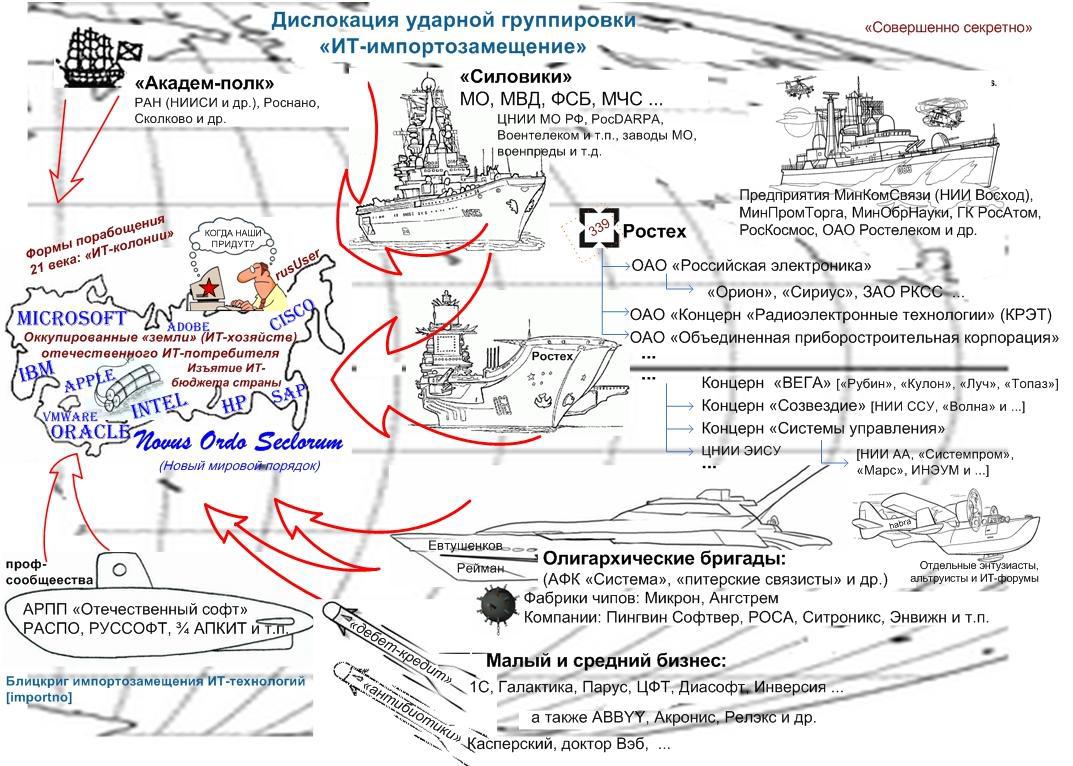 Дислокация ударной группировки
«ИТ-импортозамещение»
«Совершенно секретно»
«Академ-полк»
РАН (НИИСИ и др.), Роснано,
Сколково и др.
«Силовики»
МО, МВД, ФСБ, МЧС ...
ЦНИИ МО РФ, РосDARPA,
Воентелеком и т.п., заводы МО,
военпреды и т.д.
Предприятия МинКомСвязи (НИИ Восход),
МинПромТорга, МинОбрНауки, ГК РосАтом,
РосКосмос, ОАО Ростелеком и др.
Формы порабощения
21 века: «ИТ-колонии»
КОГДА НАШИ
ПРИДУТ?
rusUser
MICROSOFT
ADOBE
CISCO
Оккупированные «земли» (ИТ-хозяйств)
отечественного ИТ-потребителя
Изъятие ИТ-
бюджета страны
IBM
APPLE
VMWARE
INTEL
HP
SAP
ORACLE
Novus Ordo Seclorum
(Новый мировой порядок)
339
Ростех
ОАО «Российская электроника»
«Орион», «Сириус», ЗАО РКСС ...
ОАО «Концерн «Радиоэлектронные технологии» (КРЭТ)
ОАО «Объединенная приборостроительная корпорация»
...
...
Ростех
Концерн «ВЕГА» [«Рубин», «Кулон», «Луч», «Топаз»]
Концерн «Созвездие» [НИИ ССУ, «Волна» и ...]
Концерн «Системы управления»
ЦНИИ ЭИСУ
...
[НИИ АА, «Системпром»,
«Марс», ИНЭУМ и ...]
habra
Отдельные энтузиасты,
альтруисты и ИТ-форумы
Евтушенков
Рейман
Олигархические бригады:
(АФК «Система», «питерские связисты» и др.)
Фабрики чипов: Микрон, Ангстрем
Компании: Пингвин Софтвер, РОСА, Ситроникс, Энвижн и т.п.
проф-
сообщеества
АРПП «Отечественный софт»
РАСПО, РУССОФТ, ¾ АПКИТ и т.п.
Блицкриг импортозамещения ИТ-технологий
[importno]
«дебет-кредит»
«антибиотики»
Малый и средний бизнес:
1С, Галактика, Парус, ЦФТ, Диасофт, Инверсия ...
а также ABBYY, Акронис, Релэкс и др.
Касперский, доктор Вэб, ...